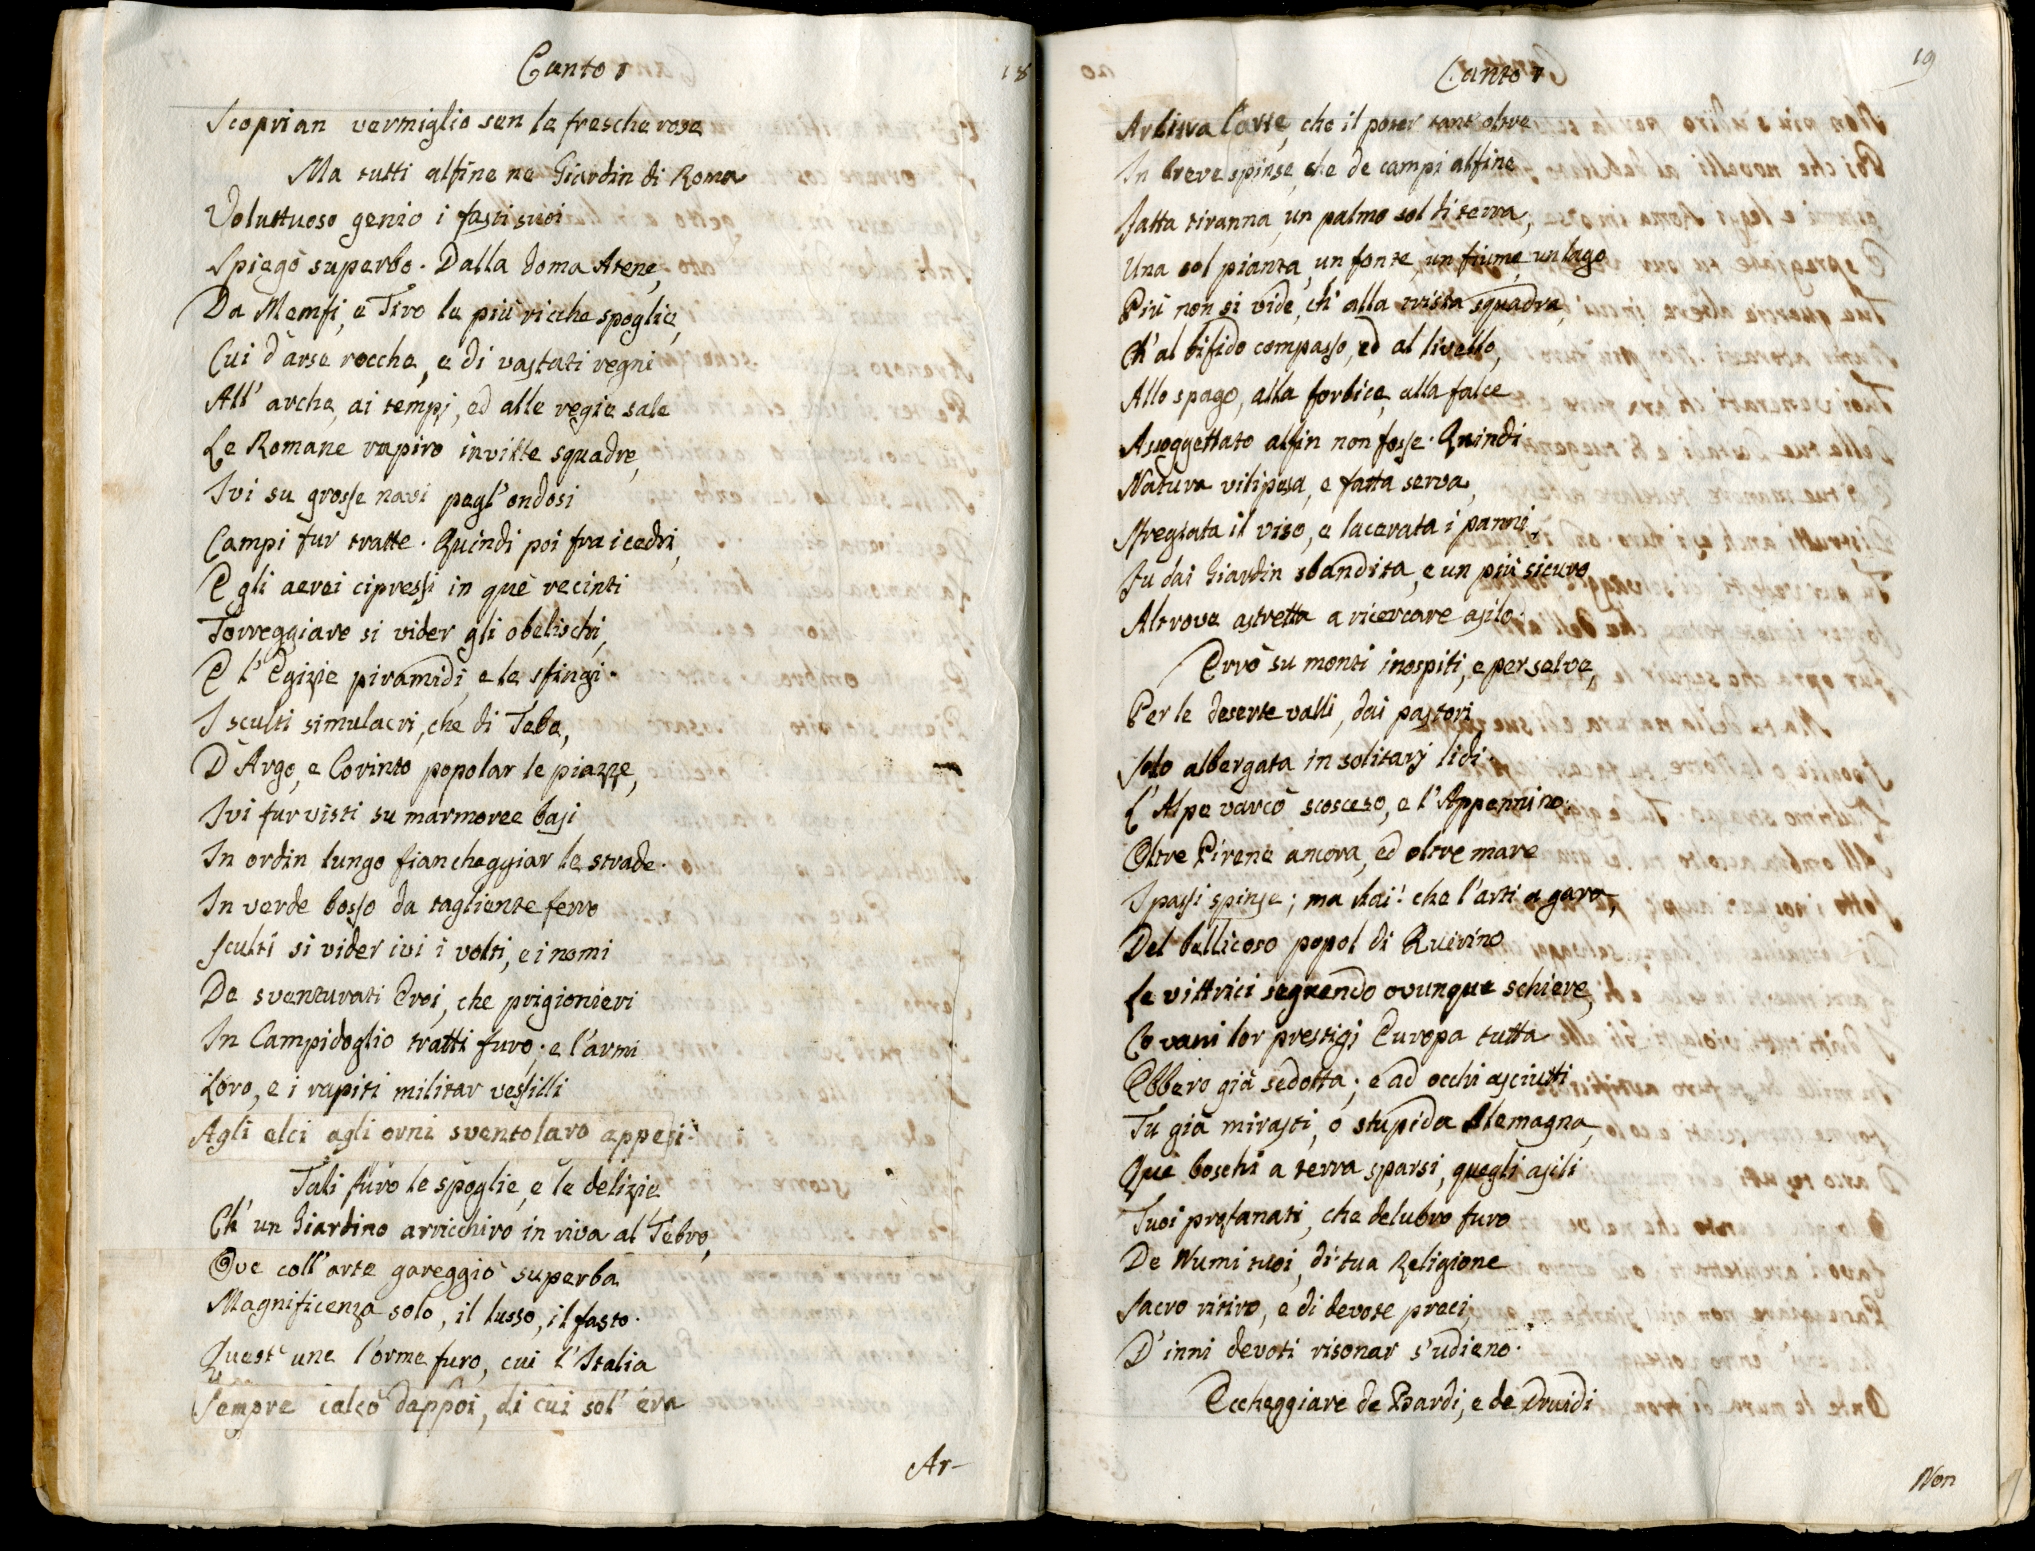 Canto 1
18
Scoprian vermiglio sen le fresche rose
Ma tutti alfine ne Giardin di Roma
Voluttuoso genio i fasti suoi
Spiegò superbo. Dalla doma Atene,
Da Memfi, e Tiro le più ricche spoglie,
Cui d'arse rocche, e di vastati regni
All' arche, ai tempj, ed alle regie sale
Le Romane rapiro invitte squadre,
Ivi su grosse navi pegl' ondosi
Campi fur tratte. Quindi poi fra i cedri,
E gli aerei cipressi in què recinti
Torreggiare si vider gli obelischi,
E l' Egizie piramidi, e le sfingi.
I sculti simulacri, che di Tebe,
D'Argo, e Corinto popolar le piazze,
Ivi fur visti su marmoree basi
In ordin lungo fiancheggiar le strade.
In verde bosso da tagliente ferro
Sculti si vider ivi i volti, e i nomi
De sventurati Eroi, che prigionieri
In Campidoglio tratti furo; e l'armi
Loro, e i rapiti militar vessilli
Agli elci agli orni sventolaro appesi.
Tali furo le spoglie, e le delizie
Ch' un Giardino arricchiro in riva al Tebro,
Ove coll' arte gareggiò superba
Magnificenza solo, il lusso, il fasto.
Quest' une l'orme furo, cui l'Italia
Sempre calcò dappoi, di cui sol' era
Ar-
Canto 1
19
Arbitra l'arte, che il poter tant' oltre
In breve spinse, che de campi alfine
Fatta tiranna, un palmo sol di terra,
Una sol pianta, un fonte, un fiume, un lago
Più non si vide, ch' alla trista squadra,
Ch' al bifido compasso, ed al livello,
Allo spago, alla forbice, alla falce
Assoggettato alfin non fosse. Quindi
Natura vilipesa, e fatta serva,
Sfregiata il viso, e lacerata i panni,
Fu dai Giardin sbandita, e un più sicuro
Altrove astretta a ricercare asilo.
Errò su monti inospiti, e per selve,
Per le deserte valli, dai pastori
Solo albergata in solitarj lidi.
L' Alpe varcò scosceso, e l'Appennino,
Oltre Pirene ancora, ed oltre mare
I passi spinse; ma ahi! che l'arti a gara,
Del bellicoso popol di Quirino
Le vittrici seguendo ovunque schiere,
Co vani lor prestigj Europa tutta
Ebbero già sedotta; e ad occhi asciutti
Tu già mirasti, o stupida Alemagna,
Què boschi a terra sparsi, quegli asili
Tuoi profanati, che delubro furo
De Numi tuoi, di tua Religione
Sacro ritiro, e di devote preci,
D' inni devoti risonar s'udieno.
Eccheggiare de Bardi, e de Druidi
Non